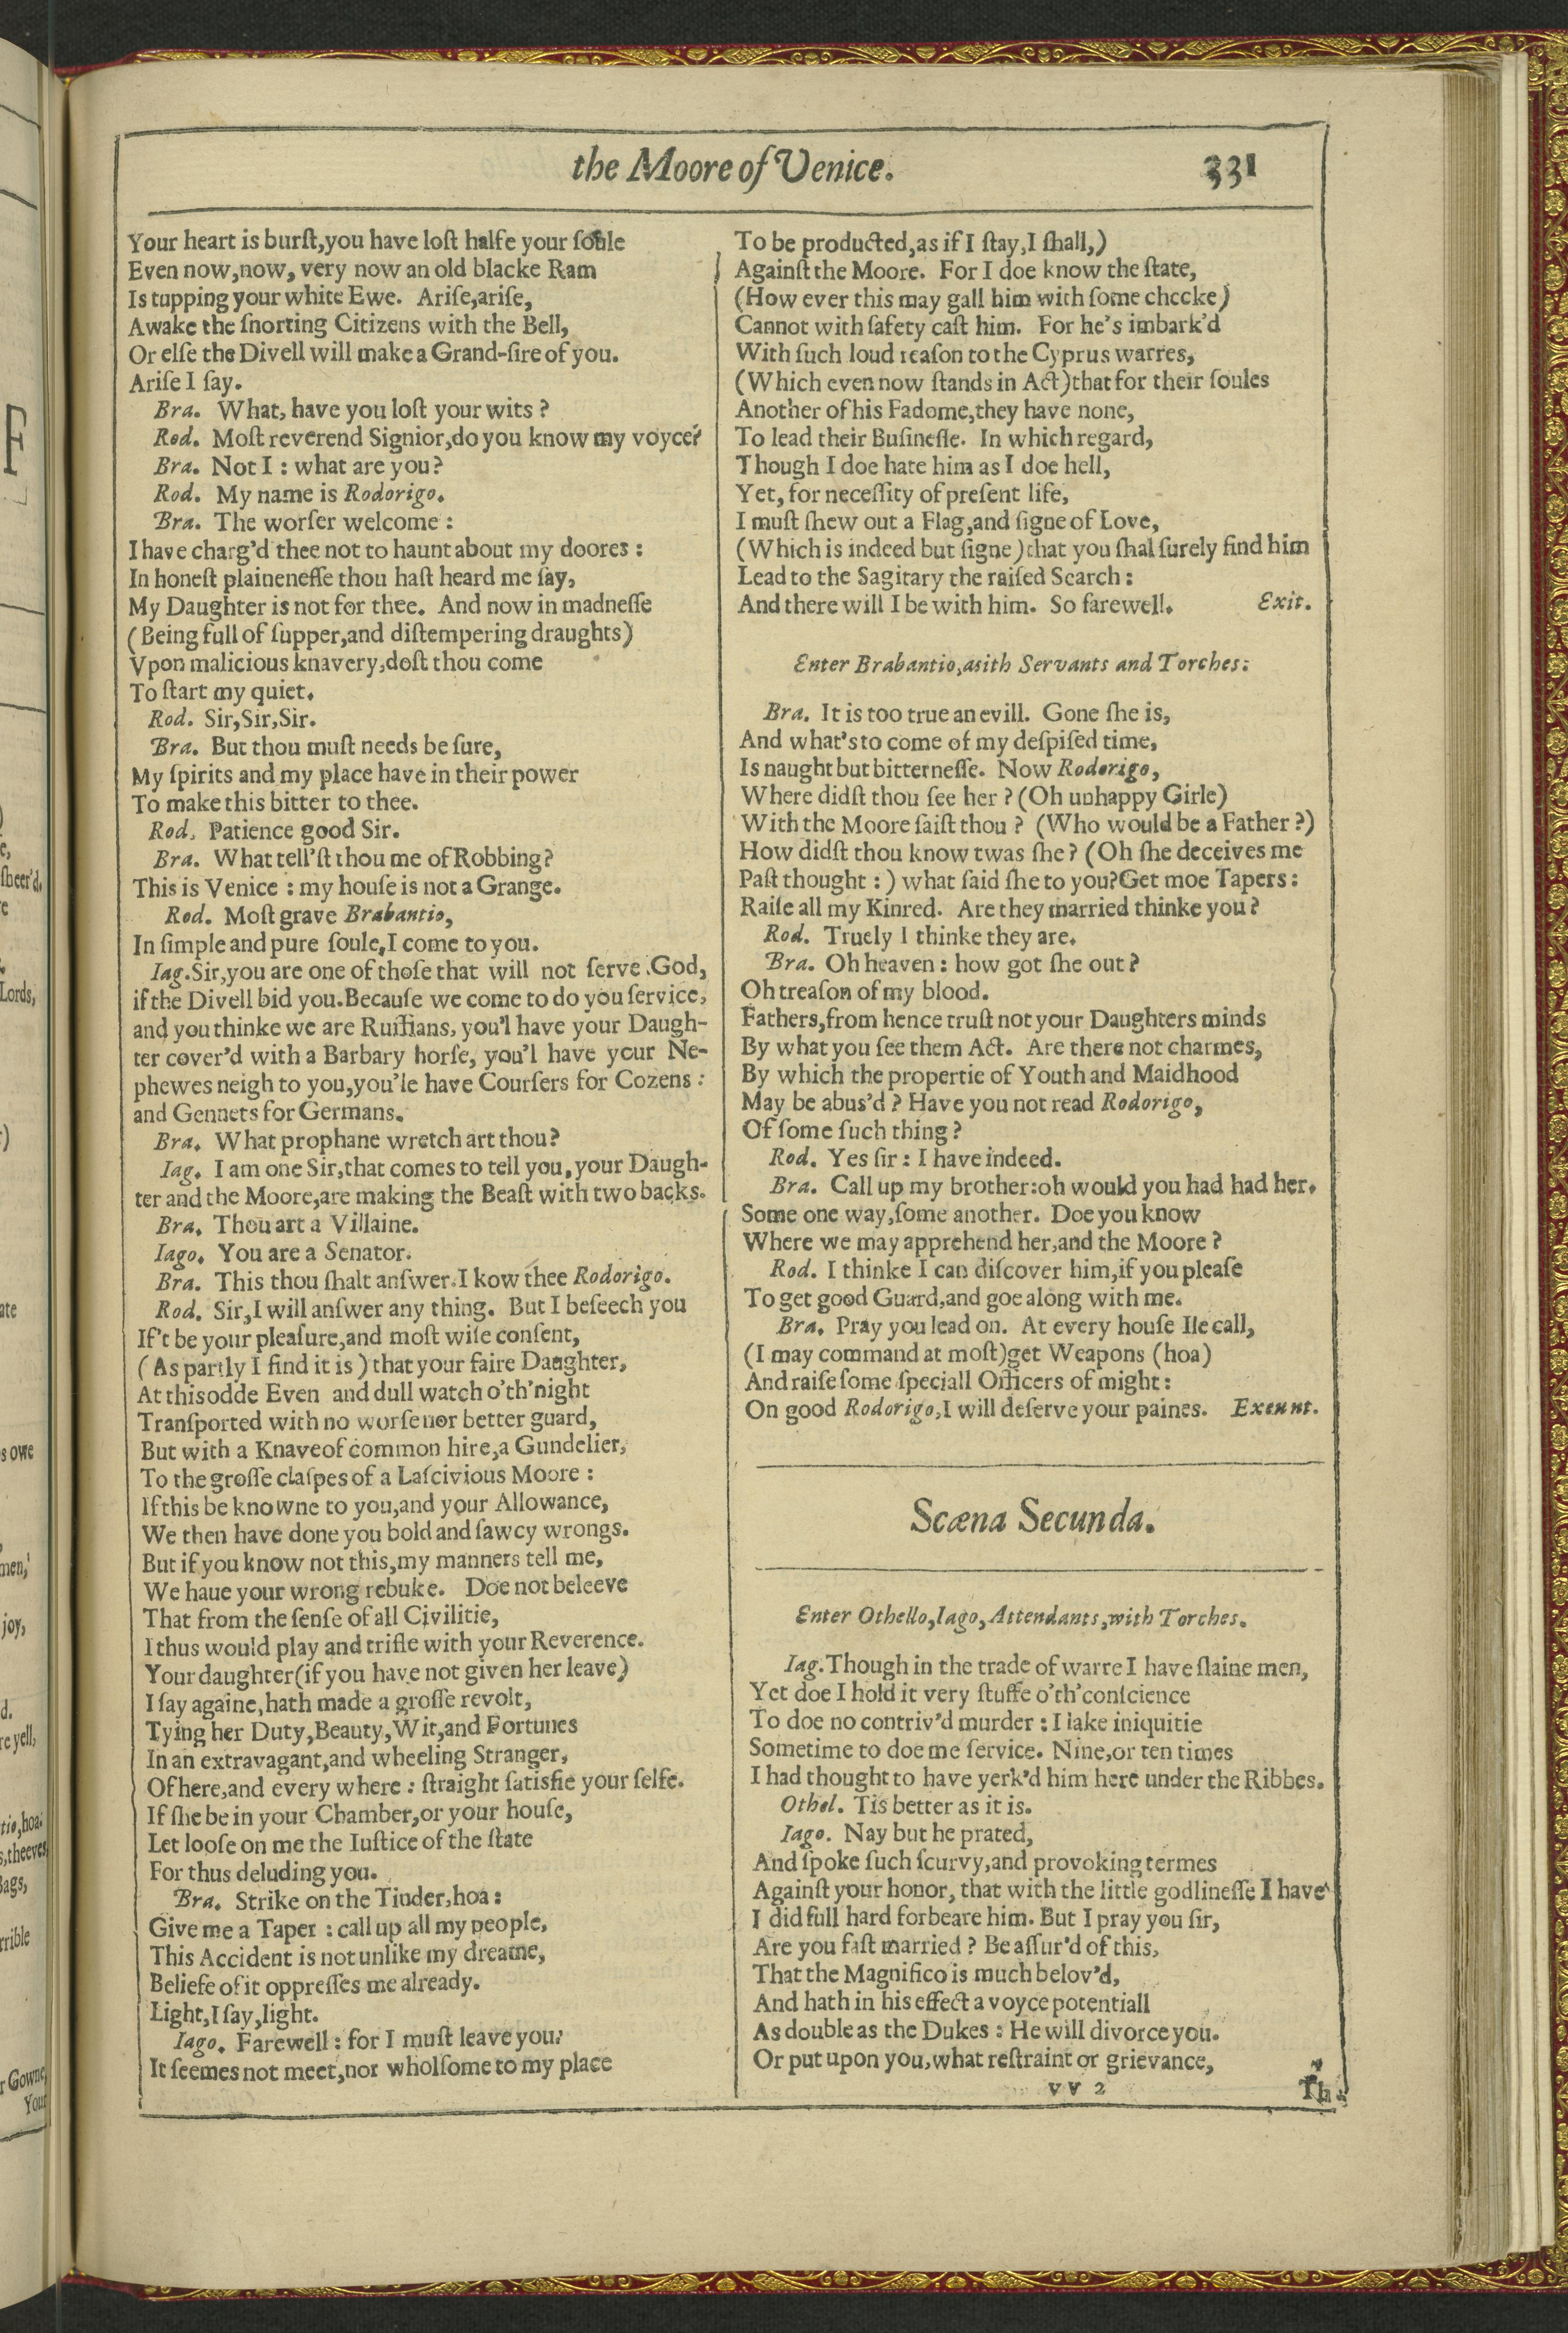 the Moore of Venice.
331
Your heart is burſt,you have loſt halfe your ſoule
Even now,now, very now an old blacke Ram
Is tupping your white Ewe. Ariſe,ariſe,
Awake the ſnorting Citizens with the Bell,
Or elſe the Divell will make a Grand-ſire of you.
Ariſe I ſay.
Bra. What, have you loſt your wits ?
Rod. Moſt reverend Signior,do you know my voyce?
Bra. Not I : what are you?
Rod. My name is Rodorigo.
Bra. The worſer welcome :
I have charg'd thee not to haunt about my doores :
In honeſt plaineneſſe thou haſt heard me ſay,
My Daughter is not for thee. And now in madneſſe
(Being full of ſupper,and diſtempering draughts)
Vpon malicious knavery,doſt thou come
To ſtart my quiet.
Rod. Sir,Sir,Sir.
Bra. But thou muſt needs be ſure,
My ſpirits and my place have in their power
To make this bitter to thee.
Rod. Patience good Sir.
Bra. What tell'ſt thou me of Robbing?
This is Venice : my houſe is not a Grange.
Rod. Moſt grave Brabantio,
In ſimple and pure ſoule,I come to you.
Iag.Sir,you are one of thoſe that will not ſerve God,
if the Divell bid you.Becauſe we come to do you ſervice,
and you thinke we are Ruffians, you'l have your Daugh-
ter cover'd with a Barbary horſe, you'l have your Ne-
phewes neigh to you,you'le have Courſers for Cozens :
and Gennets for Germans.
Bra. What prophane wretch art thou?
Iag. I am one Sir,that comes to tell you,your Daugh-
ter and the Moore,are making the Beaſt with two backs.
Bra. Thou art a Villaine.
Iago. You are a Senator.
Bra. This thou ſhalt anſwer.I kow thee Rodorigo.
Rod. Sir,I will anſwer any thing. But I beſeech you
If't be your pleaſure,and moſt wiſe conſent,
( As partly I find it is ) that your faire Daughter,
At this odde Even and dull watch o'th'night
Tranſported with no worſe nor better guard,
But with a Knave of common hire,a Gundelier,
To the groſſe claſpes of a Laſcivious Moore :
If this be knowne to you,and your Allowance,
We then have done you bold and ſawcy wrongs.
But if you know not this,my manners tell me,
We haue your wrong rebuke. Doe not beleeve
That from the ſenſe of all Civilitie,
I thus would play and trifle with your Reverence.
Your daughter(if you have not given her leave)
I ſay againe,hath made a groſſe revolt,
Tying her Duty,Beauty,Wit,and Fortunes
In an extravagant,and wheeling Stranger,
Of here,and every where : ſtraight ſatisfie your ſelfe.
If ſhe be in your Chamber,or your houſe,
Let looſe on me the Iuſtice of the ſtate
For thus deluding you.
Bra. Strike on the Tinder,hoa :
Give me a Taper : call up all my people,
This Accident is not unlike my dreame,
Beliefe of it oppreſſes me already.
Light,I ſay,light.
Iago. Farewell : for I muſt leave you.
It ſeemes not meet,nor wholſome to my place
To be producted,as if I ſtay,I ſhall,)
Againſt the Moore. For I doe know the ſtate,
(How ever this may gall him with ſome checke)
Cannot with ſafety caſt him. For he's imbark'd
With ſuch loud reaſon to the Cyprus warres,
(Which even now ſtands in Act)that for their ſoules
Another of his Fadome,they have none,
To lead their Buſineſſe. In which regard,
Though I doe hate him as I doe hell,
Yet, for neceſſity of preſent life,
I muſt ſhew out a Flag,and ſigne of Love,
(Which is indeed but ſigne)that you ſhal ſurely find him
Lead to the Sagitary the raiſed Search :
And there will I be with him. So farewell. Exit.
Enter Brabantio,asith Servants and Torches:
Bra. It is too true an evill. Gone ſhe is,
And what's to come of my deſpiſed time,
Is naught but bitterneſſe. Now Rodorigo,
Where didſt thou ſee her ? (Oh unhappy Girle)
With the Moore ſaiſt thou ? (Who would be a Father ?)
How didſt thou know twas ſhe ? (Oh ſhe deceives me
Paſt thought :) what ſaid ſhe to you?Get moe Tapers :
Raiſe all my Kinred. Are they married thinke you ?
Rod. Truely I thinke they are.
Bra. Oh heaven : how got ſhe out ?
Oh treaſon of my blood.
Fathers,from hence truſt not your Daughters minds
By what you ſee them Act. Are there not charmes,
By which the propertie of Youth and Maidhood
May be abus'd ? Have you not read Rodorigo,
Of ſome ſuch thing ?
Rod. Yes ſir : I have indeed.
Bra. Call up my brother:oh would you had had her.
Some one way,ſome another. Doe you know
Where we may apprehend her,and the Moore ?
Rod. I thinke I can diſcover him,if you pleaſe
To get good Guard,and goe along with me.
Bra. Pray you lead on. At every houſe Ile call,
(I may command at moſt)get Weapons (hoa)
And raiſe ſome ſpeciall Officers of might :
On good Rodorigo,I will deſerve your paines. Exeunt.
Scæna Secunda.
Enter Othello,Iago,Attendants,with Torches.
Iag.Though in the trade of warre I have ſlaine men,
Yet doe I hold it very ſtuffe o'th'conſcience
To doe no contriv'd murder : I lake iniquitie
Sometime to doe me ſervice. Nine,or ten times
I had thought to have yerk'd him here under the Ribbes.
Othel. Tis better as it is.
Iago. Nay but he prated,
And ſpoke ſuch ſcurvy,and provoking termes
Againſt your honor, that with the little godlineſſe I have
I did full hard forbeare him. But I pray you ſir,
Are you faſt married ? Be aſſur'd of this,
That the Magnifico is much belov'd,
And hath in his effect a voyce potentiall
As double as the Dukes : He will divorce you.
Or put upon you,what reſtraint or grievance,
VV 2
F
ſheer'd.
Lords,
s owe
men,
joy,
d.
re yell,
tio,hoa:
s,theeves,
Bags,
rrible
r Gowne,
Your